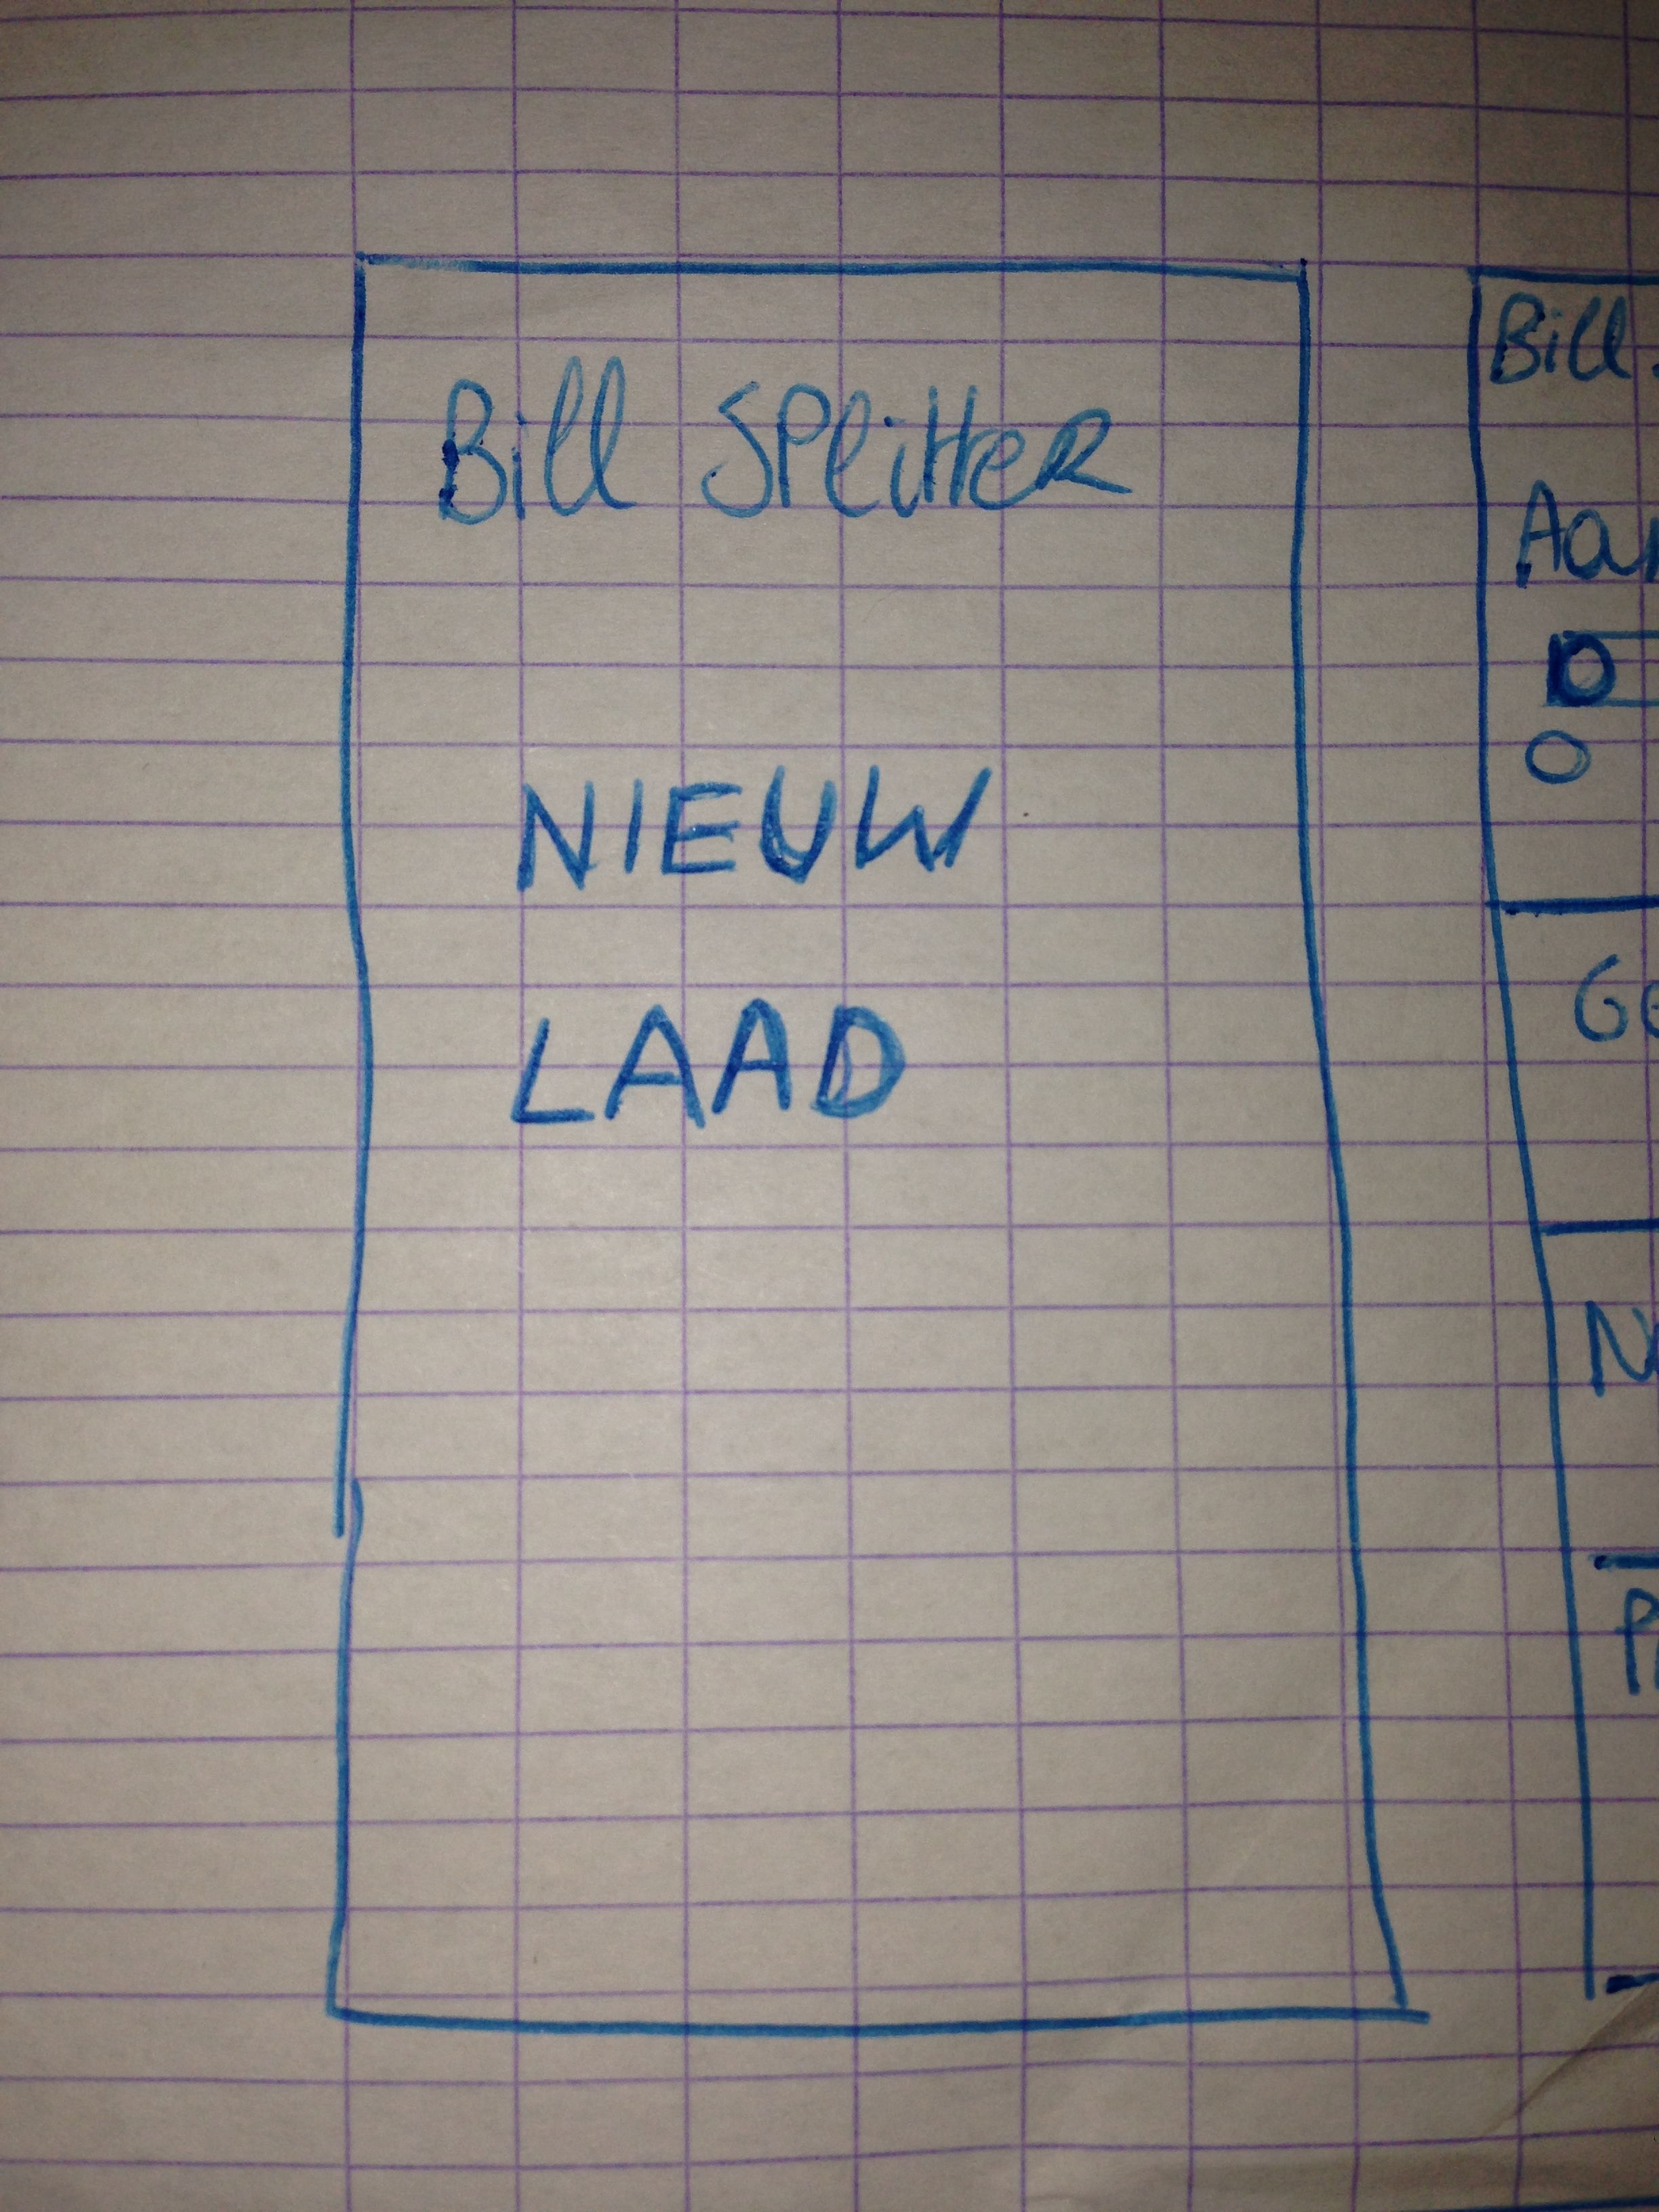 Bill Splitter
NIEUW
LAAD
Bill